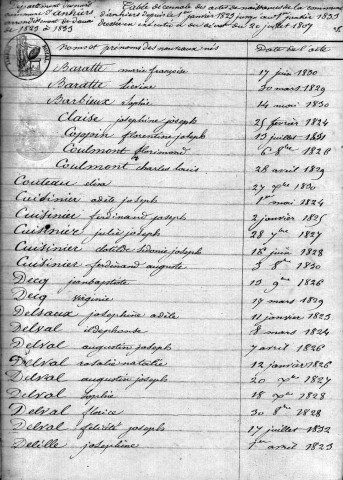 Département du nord
Table décennale des actes de naissances de la commune
d'anvers depuis le 1er janvier 1823 jusqu'au 1er janvier 1833
arrondissement de douai
dressée en exécution du décret du 20 juillet 1807
de 1823 à 1833
Noms et prénoms des nouveaux nés Date de l'acte
Baratte marie françoise 17 juin 1830
Baratte 30 mars 1829
Barbieux Sophie 14 mai 1830
Claise joséphine joseph 25 février 1824
Coppin florentine joseph 13 juillet 1831
Coulmont florimond 6 8bre 1826
Coulmont charles louis 28 avril 1829
Couteau élisa 27 xbre 1830
Cuisinier adèle joseph 1er mai 1824
Cuisinier ferdinand joseph 2 janvier 1825
Cuisinier julie joseph 28 7bre 1827
Cuisinier clotilde sidonie joseph 18 juin 1828
Cuisinier ferdinand auguste 3 8bre 1830
Decq jean baptiste 13 9bre 1826
Decq virginie 17 mars 1829
Delsaux joséphine adèle 11 janvier 1823
Delval ildephonse 8 mars 1824
Delval augustin joseph 7 avril 1826
Delval rosalie natalie 12 janvier 1826
Delval augustin joseph 20 xbre 1827
Delval sophie 18 xbre 1828
Delval florice 30 8bre 1828
Delval félicité joseph 17 juillet 1832
Delille joséphine 1er avril 1823